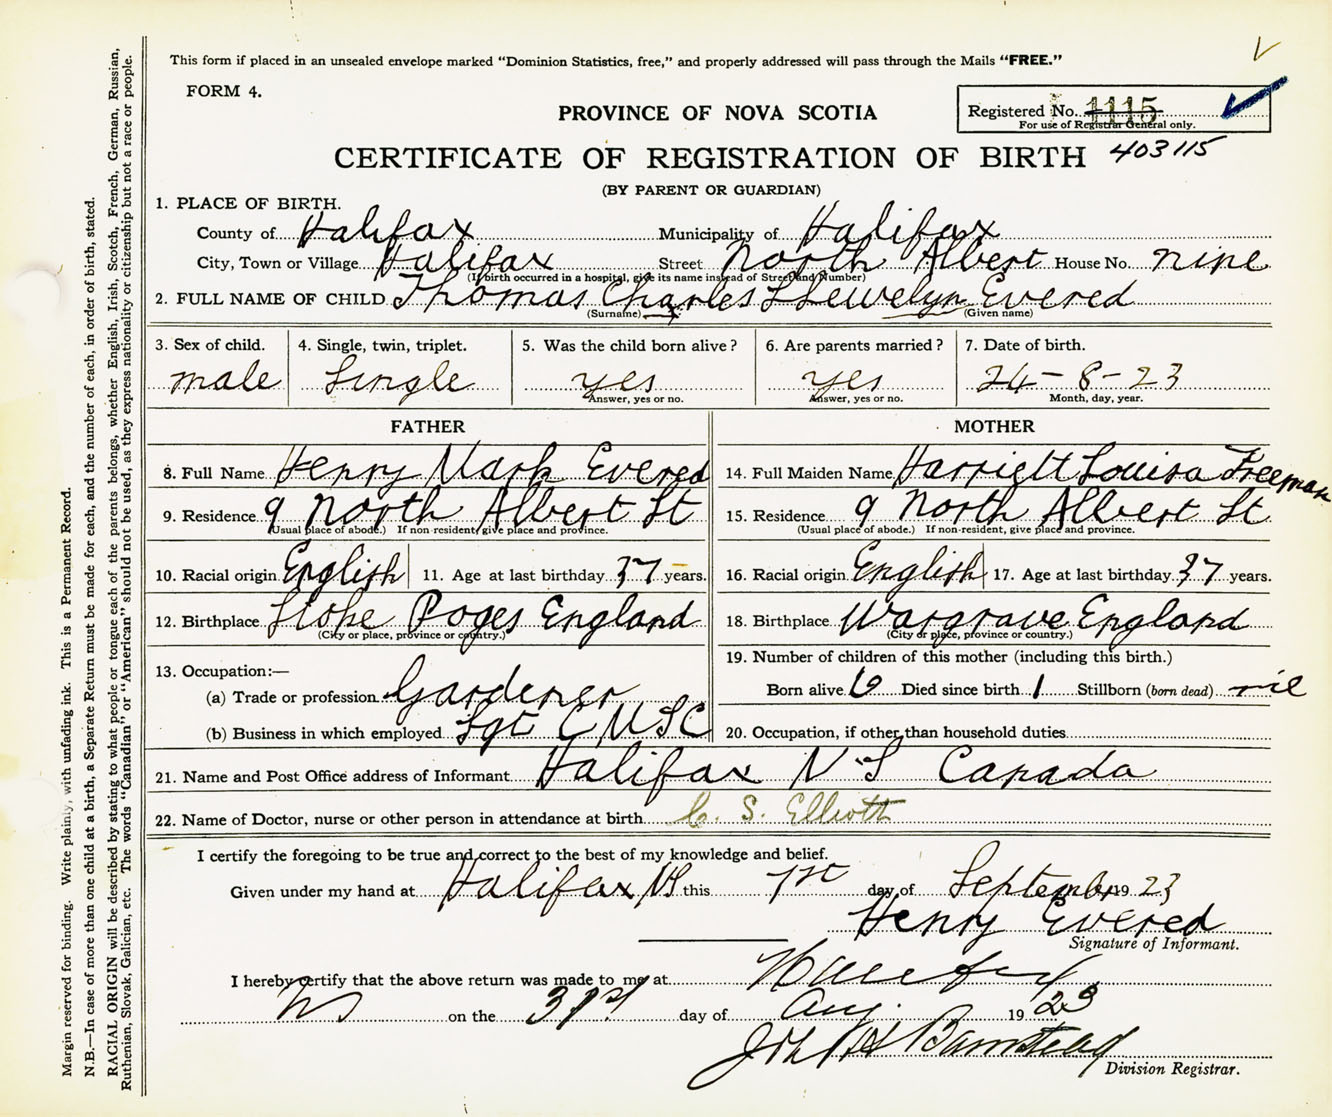 This form if placed in an unsealed envelope marked "Dominion Statistics, free," and properly addressed will pass through the Mails "FREE."
FORM 4.
PROVINCE OF NOVA SCOTIA
Registered No. 1115
For use of Registrar General only.
CERTIFICATE OF REGISTRATION OF BIRTH 403115
(BY PARENT OR GUARDIAN)
1. PLACE OF BIRTH.
County of Halifax Municipality of Halifax
City, Town or Village Halifax Street North Albert House No. nine
(If birth occurred in a hospital, give its name instead of Street and Number)
2. FULL NAME OF CHILD Thomas Charles Llewelyn Evered
(Surname) (Given name)
3. Sex of child. 4. Single, twin, triplet. 5. Was the child born alive? 6. Are parents married? 7. Date of birth.
male Single yes yes 24-8-23
Answer, yes or no. Answer, yes or no. Month, day, year.
FATHER MOTHER
8. Full Name Henry Mark Evered 14. Full Maiden Name Harriett Louisa Freeman
9. Residence 9 North Albert St 15. Residence 9 North Albert St.
(Usual place of abode.) If non-resident, give place and province. (Usual place of abode.) If non-resident, give place and province.
10. Racial origin English 11. Age at last birthday 37 years. 16. Racial origin English 17. Age at last birthday 37 years.
12. Birthplace Stoke Poges England 18. Birthplace Wargrave England
(City or place, province or country.) (City or place, province or country.)
13. Occupation:— 19. Number of children of this mother (including this birth.)
(a) Trade or profession Gardener Born alive 6 Died since birth 1 Stillborn (born dead) nil
(b) Business in which employed Sgt C M S C 20. Occupation, if other than household duties
21. Name and Post Office address of Informant Halifax N.S Canada
22. Name of Doctor, nurse or other person in attendance at birth C. S. Elliott
I certify the foregoing to be true and correct to the best of my knowledge and belief.
Given under my hand at Halifax NS this 1st day of September 1923
Henry Evered
Signature of Informant.
I hereby certify that the above return was made to me at Halifax
NS on the 31st day of Aug 1923
Division Registrar.
Margin reserved for binding. Write plainly, with unfading ink. This is a Permanent Record.
N.B.—In case of more than one child at a birth, a Separate Return must be made for each, and the number of each, in order of birth, stated.
RACIAL ORIGIN will be described by stating to what people or tongue each of the parents belongs, whether English, Irish, Scotch, French, German, Russian,
Ruthenian, Slovak, Galician, etc. The words "Canadian" or "American" should not be used, as they express nationality or citizenship but not a race or people.